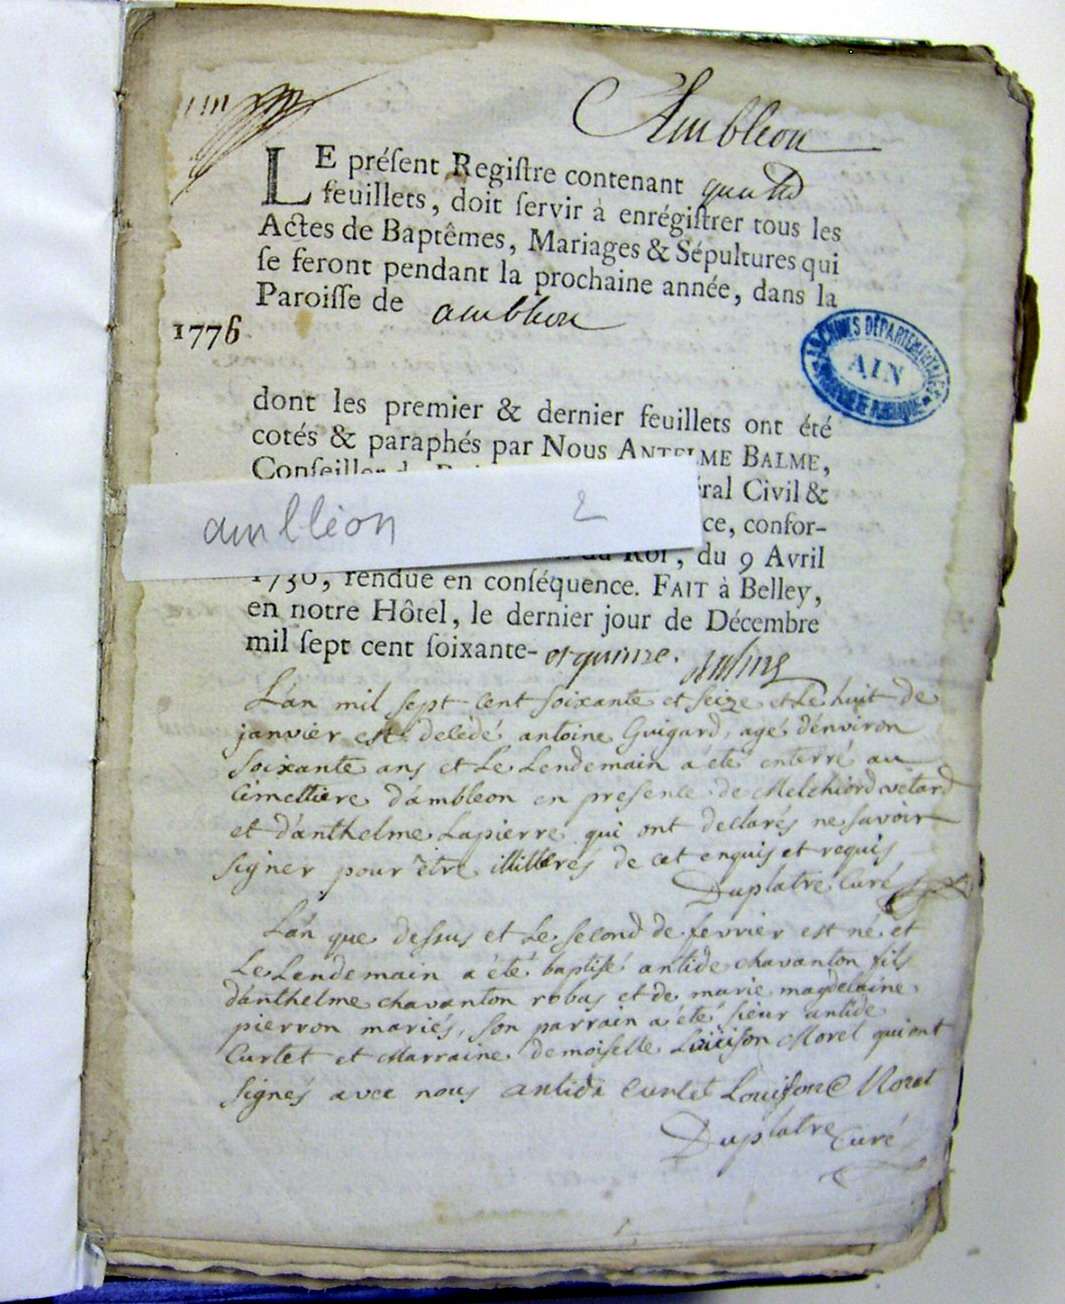 Ambleon
LE préſent Regiſtre contenant quatre
feuillets, doit ſervir à enrégiſtrer tous les
Actes de Baptêmes, Mariages & Sépultures qui
ſe feront pendant la prochaine année, dans la
Paroiſſe de ambleon
1776
ARCHIVES DÉPARTEMENTALES
AIN
dont les premier & dernier feuillets ont été
cotés & paraphés par Nous ANTELME BALME,
Conſeiller
éral Civil &
ambléon 2
ce, confor-
du Roi, du 9 Avril
1736, rendue en conſéquence. FAIT à Belley,
en notre Hôtel, le dernier jour de Décembre
mil ſept cent ſoixante- et quinze. Balme
L'an mil sept cent soixante et seize et le huit de
janvier est décédé antoine Guigard, agé d'énviron
soixante ans et le lendemain a été enterré au
cimettiere d'ambleon en presence de Melchiord vetard
et d'anthelme Lapierre qui ont declarés ne savoir
signer pour être illitterés de cet enquis et requis
Duplatre Curé
L'an que dessus et le second de fevrier est né et
le lendemain a été baptisé antide chavanton fils
d'anthelme chavanton robas et de marie magdelaine
pierron mariés, son parrain a été sieur antide
Curtet et Marraine demoiselle Louison Morel qui ont
signés avec nous antide Curtet Louison Morel
Duplatre Curé